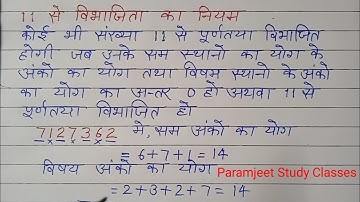 11 से विभाजिता का नियम
कोई भी संख्या 11 से पूर्णतया विभाजित
होगी जब उनके सम स्थानो का योग के
अंको का योग तथा विषम स्थानो के अंको
का योग का अन्तर 0 हो अथवा 11 से
पूर्णतया विभाजित हो
7127362 मे, सम अंको का योग
= 6+7+1 = 14
विषय अंको का योग Paramjeet Study Classes
= 2+3+2+7 = 14